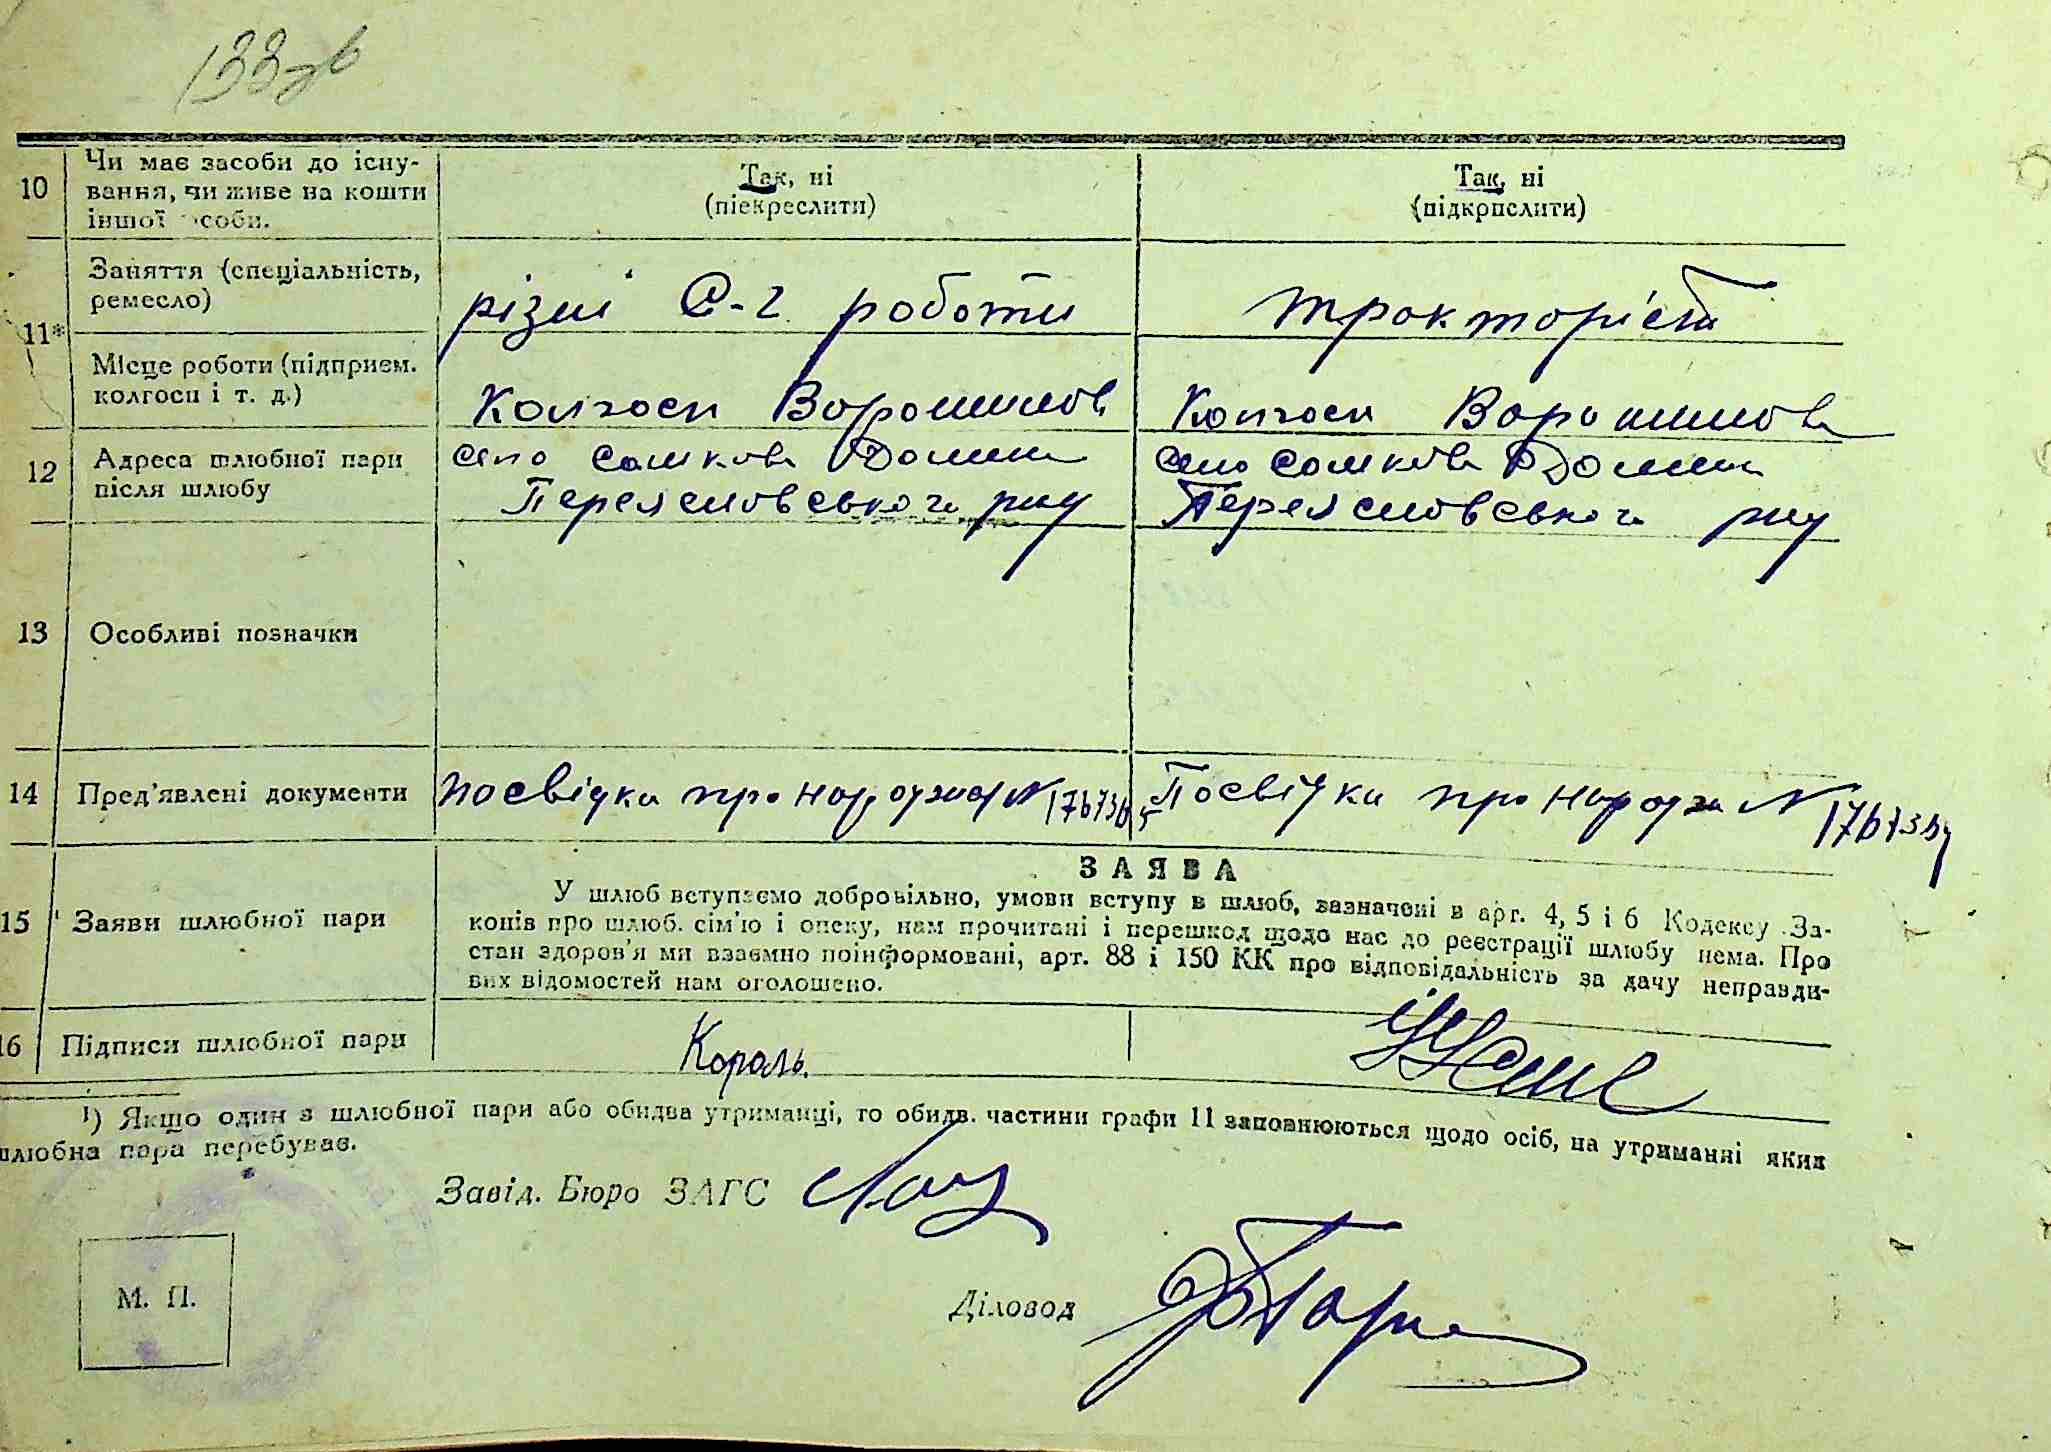 133зв
10 Чи має засоби до існу-
вання, чи живе на кошти
іншої особи.
Так, ні
(піекреслити)
Так, ні
(підкрпслити)
11* Заняття (спеціальність,
ремесло)
різні С-г роботи
тракторіст
Місце роботи (підприєм.
колгосп і т. д.)
Колгосп Ворошилов
Колгосп Ворошилова
12 Адреса шлюбної пари
після шлюбу
село Сомкова Долина
Переяславського р-ну
село Сомкова Долина
Переяславського р-ну
13 Особливі позначки
14 Пред'явлені документи
Посвідка про народжен N
Посвідка про народже N
15 Заяви шлюбної пари
ЗАЯВА
У шлюб вступаємо добровільно, умови вступу в шлюб, зазначені в арт. 4, 5 і 6 Кодексу За-
конів про шлюб. сім'ю і опеку, нам прочитані і перешкод щодо нас до реєстрації шлюбу нема. Про
стан здоров'я ми взаємно поінформовані, арт. 88 і 150 КК про відповідальність за дачу неправди-
вих відомостей нам оголошено.
16 Підписи шлюбної пари
Король.
1) Якщо один з шлюбної пари або обидва утриманці, то обидв. частини графи 11 заповнюються щодо осіб, на утриманні яких
шлюбна пара перебуває.
Завід. Бюро ЗАГС
М. П.
Діловод